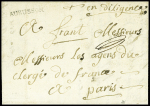 en diligence
A
Messieurs
Messieurs les agens du
clergé de france
a paris